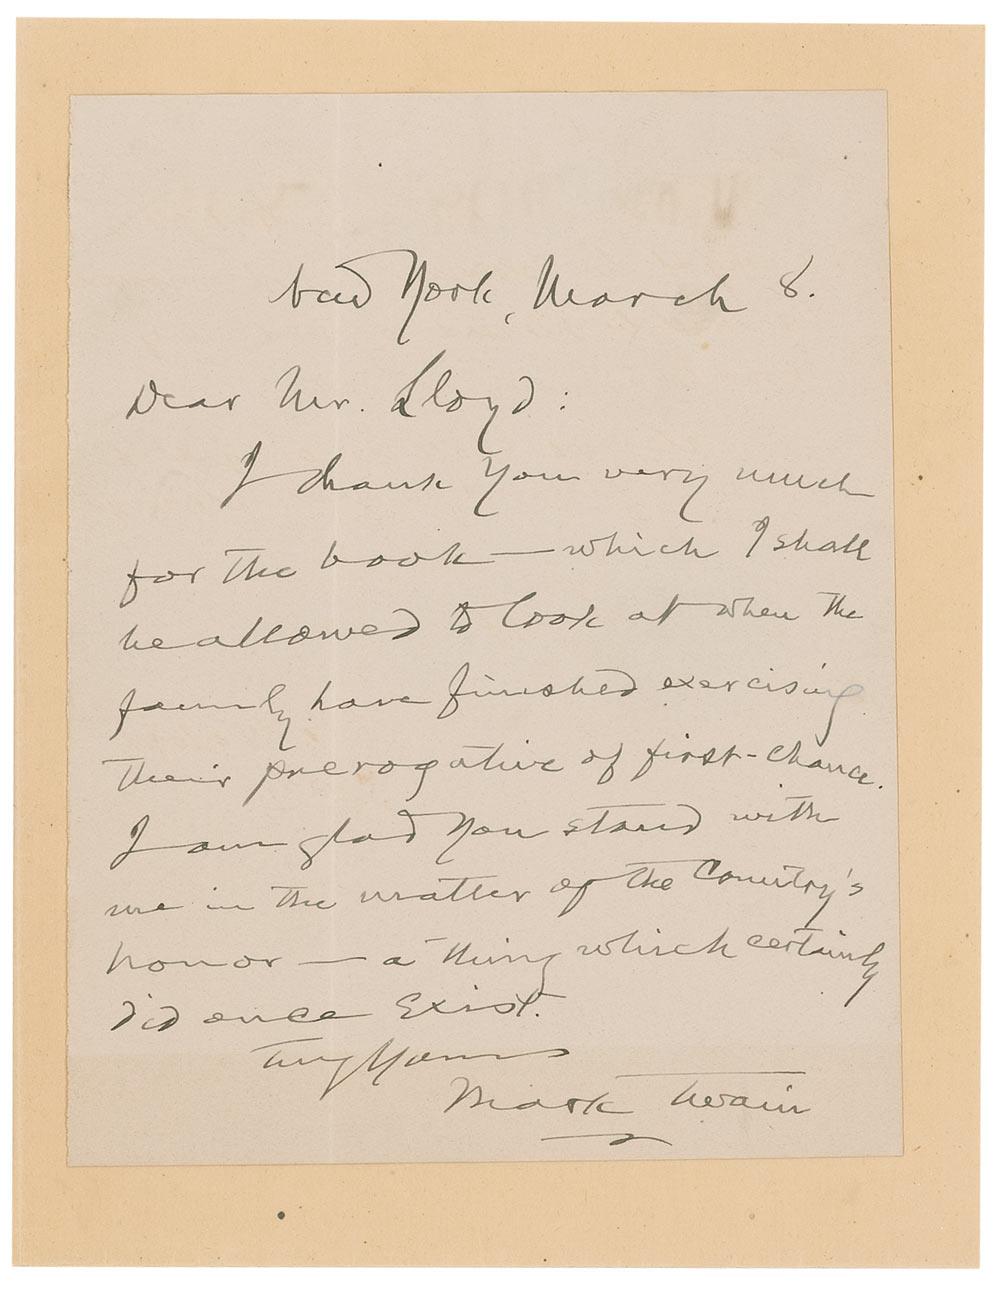 New York, March 8.
Dear Mr. Lloyd:
I thank you very much
for the book — which I shall
be allowed to look at when the
family have finished exercising
their prerogative of first-chance.
I am glad you stand with
me in the matter of the Country's
honor — a thing which certainly
did once exist.
Truly Yours
Mark Twain